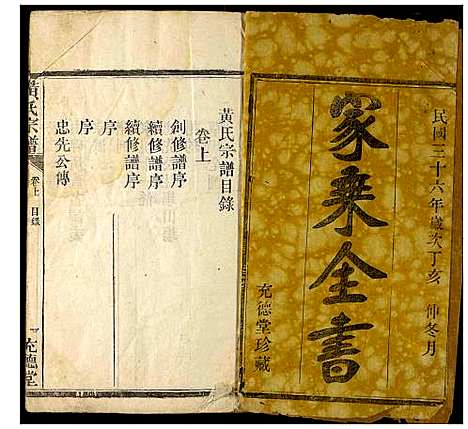 民國三十六年歲次丁亥 仲冬月
家乘全書
充德堂珍藏
黃氏宗譜目錄
卷上
創修譜序
續修譜序
續修譜序
序
序
忠先公傳
黃氏宗譜 卷上 目錄 一 充德堂